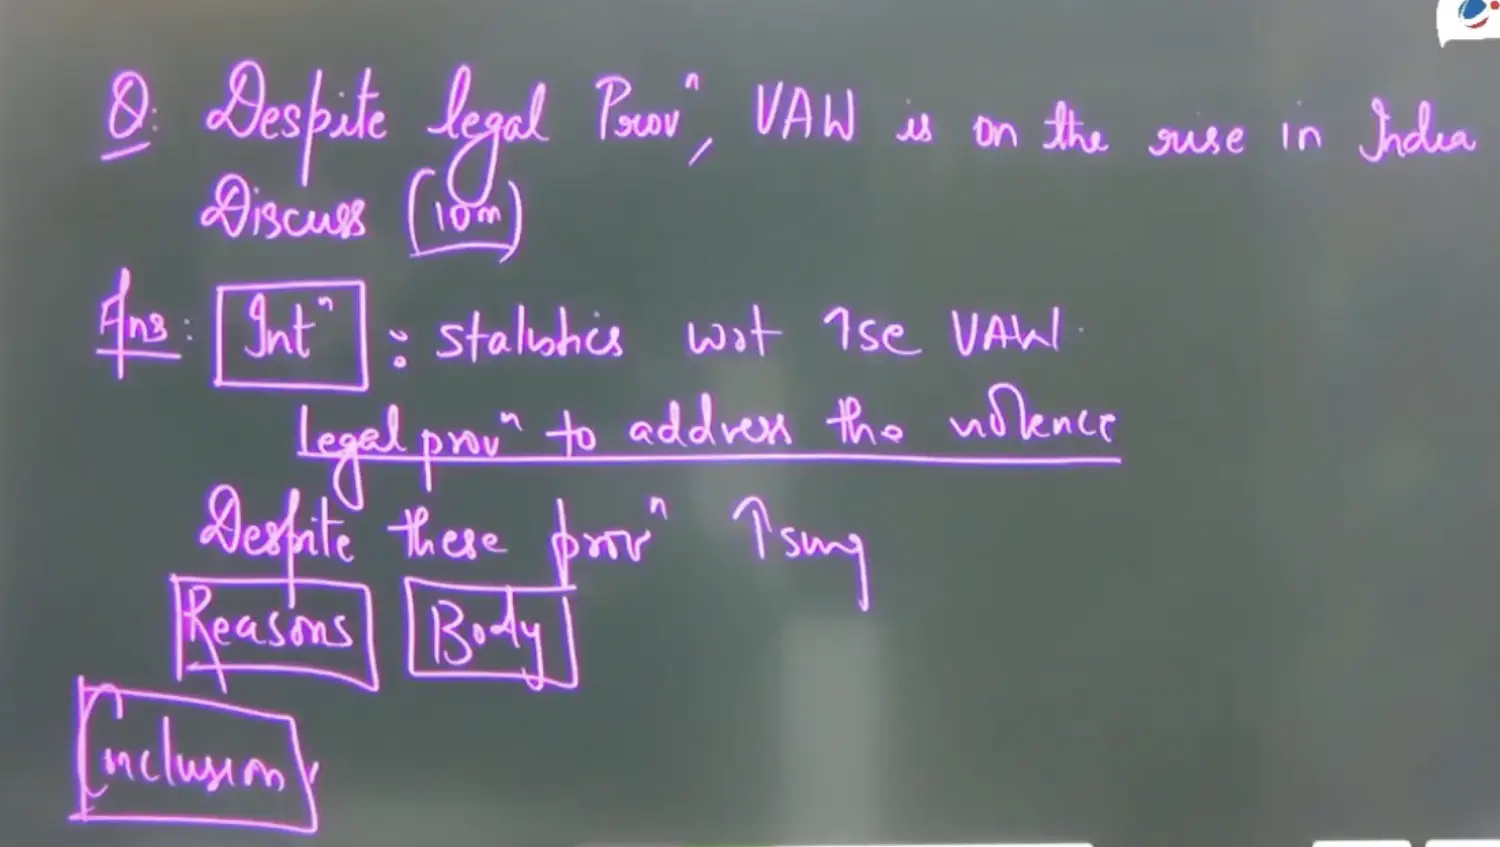 Q: Despite legal Provⁿ, VAW is on the rise in India
Discuss (10m)
Ans: Intⁿ : statistics wrt ↑se VAW.
legal provⁿ to address the violence
Despite these provⁿ ↑sing
Reasons Body
Conclusion